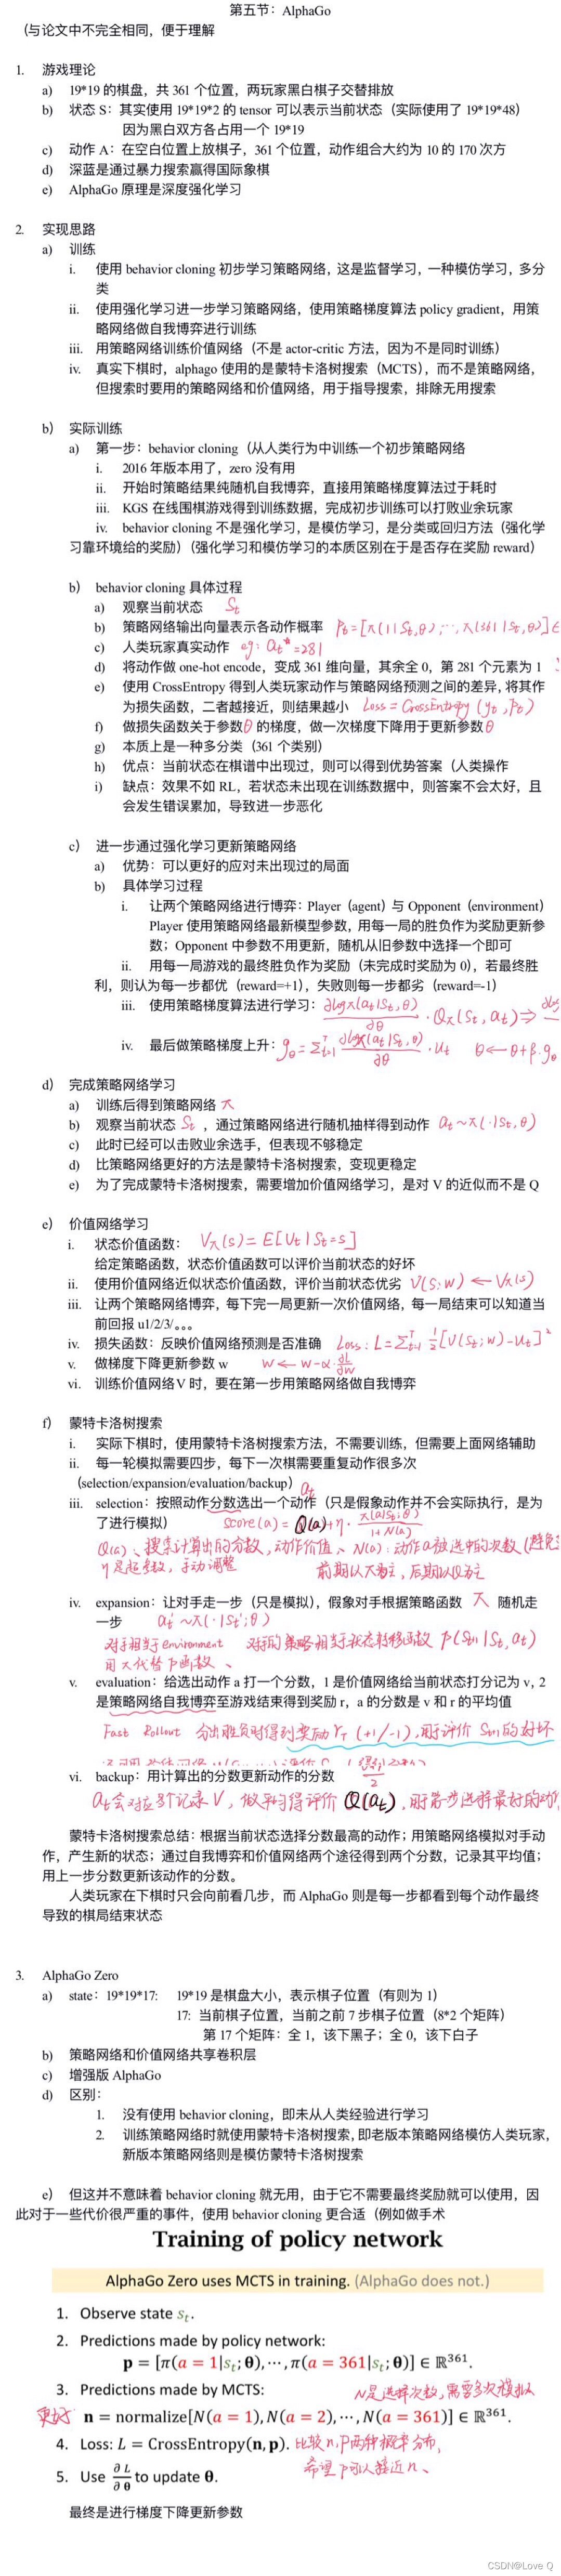 第五节：AlphaGo
（与论文中不完全相同，便于理解
1. 游戏理论
a) 19*19 的棋盘，共 361 个位置，两玩家黑白棋子交替排放
b) 状态 S：其实使用 19*19*2 的 tensor 可以表示当前状态（实际使用了 19*19*48）
因为黑白双方各占用一个 19*19
c) 动作 A：在空白位置上放棋子，361 个位置，动作组合大约为 10 的 170 次方
d) 深蓝是通过暴力搜索赢得国际象棋
e) AlphaGo 原理是深度强化学习
2. 实现思路
a) 训练
i. 使用 behavior cloning 初步学习策略网络，这是监督学习，一种模仿学习，多分
类
ii. 使用强化学习进一步学习策略网络，使用策略梯度算法 policy gradient，用策
略网络做自我博弈进行训练
iii. 用策略网络训练价值网络（不是 actor-critic 方法，因为不是同时训练）
iv. 真实下棋时，alphago 使用的是蒙特卡洛树搜索（MCTS），而不是策略网络，
但搜索时要用的策略网络和价值网络，用于指导搜索，排除无用搜索
b) 实际训练
a) 第一步：behavior cloning（从人类行为中训练一个初步策略网络
i. 2016 年版本用了，zero 没有用
ii. 开始时策略结果纯随机自我博弈，直接用策略梯度算法过于耗时
iii. KGS 在线围棋游戏得到训练数据，完成初步训练可以打败业余玩家
iv. behavior cloning 不是强化学习，是模仿学习，是分类或回归方法（强化学
习靠环境给的奖励）（强化学习和模仿学习的本质区别在于是否存在奖励 reward）
b) behavior cloning 具体过程
a) 观察当前状态 St
b) 策略网络输出向量表示各动作概率 Pt=[π(1|St,θ),…,π(361|St,θ)]∈
c) 人类玩家真实动作 eg: at*=281
d) 将动作做 one-hot encode，变成 361 维向量，其余全 0，第 281 个元素为 1
e) 使用 CrossEntropy 得到人类玩家动作与策略网络预测之间的差异，将其作
为损失函数，二者越接近，则结果越小 Loss = CrossEntropy (yt, Pt)
f) 做损失函数关于参数θ的梯度，做一次梯度下降用于更新参数θ
g) 本质上是一种多分类（361 个类别）
h) 优点：当前状态在棋谱中出现过，则可以得到优势答案（人类操作
i) 缺点：效果不如 RL，若状态未出现在训练数据中，则答案不会太好，且
会发生错误累加，导致进一步恶化
c) 进一步通过强化学习更新策略网络
a) 优势：可以更好的应对未出现过的局面
b) 具体学习过程
i. 让两个策略网络进行博弈：Player（agent）与 Opponent（environment）
Player 使用策略网络最新模型参数，用每一局的胜负作为奖励更新参
数；Opponent 中参数不用更新，随机从旧参数中选择一个即可
ii. 用每一局游戏的最终胜负作为奖励（未完成时奖励为 0），若最终胜
利，则认为每一步都优（reward=+1），失败则每一步都劣（reward=-1）
iii. 使用策略梯度算法进行学习：∂logπ(at|St,θ)/∂θ · Qπ(St,at)⇒
iv. 最后做策略梯度上升：gθ=Σt=1^T ∂logπ(at|St,θ)/∂θ · ut θ←θ+β·gθ
d) 完成策略网络学习
a) 训练后得到策略网络 π
b) 观察当前状态 St ，通过策略网络进行随机抽样得到动作 at~π(·|St,θ)
c) 此时已经可以击败业余选手，但表现不够稳定
d) 比策略网络更好的方法是蒙特卡洛树搜索，变现更稳定
e) 为了完成蒙特卡洛树搜索，需要增加价值网络学习，是对 V 的近似而不是 Q
e) 价值网络学习
i. 状态价值函数： Vπ(s)=E[Ut|St=s]
给定策略函数，状态价值函数可以评价当前状态的好坏
ii. 使用价值网络近似状态价值函数，评价当前状态优劣 V(S;w)←Vπ(s)
iii. 让两个策略网络博弈，每下完一局更新一次价值网络，每一局结束可以知道当
前回报 u1/2/3/。。。
iv. 损失函数：反映价值网络预测是否准确 Loss: L=Σt=1^T 1/2[V(St;w)-ut]²
v. 做梯度下降更新参数 w w←w-α·∂L/∂w
vi. 训练价值网络 V 时，要在第一步用策略网络做自我博弈
f) 蒙特卡洛树搜索
i. 实际下棋时，使用蒙特卡洛树搜索方法，不需要训练，但需要上面网络辅助
ii. 每一轮模拟需要四步，每下一次棋需要重复动作很多次
（selection/expansion/evaluation/backup）at
iii. selection：按照动作分数选出一个动作（只是假象动作并不会实际执行，是为
了进行模拟） score(a)= Q(a)+η·π(a|St;θ)/1+N(a)
Q(a)、搜索计算出的分数，动作价值、N(a):动作a被选中的次数(避免
η是超参数，手动调整 前期以π为主，后期以Q为主
iv. expansion：让对手走一步（只是模拟），假象对手根据策略函数 π 随机走
一步 at'~π(·|St';θ)
对手相当于environment 对手的策略相当于状态转移函数 P(St+1|St,at)
用π代替P函数、
v. evaluation：给选出动作 a 打一个分数，1 是价值网络给当前状态打分记为 v，2
是策略网络自我博弈至游戏结束得到奖励 r，a 的分数是 v 和 r 的平均值
Fast Rollout 分出胜负时得到奖励 rT (+1/-1),用于评价 St+1的好坏
vi. backup：用计算出的分数更新动作的分数 2
at会对应多个记录V，做平均得评价 Q(at),用于第一步选择最好的动作
蒙特卡洛树搜索总结：根据当前状态选择分数最高的动作；用策略网络模拟对手动
作，产生新的状态；通过自我博弈和价值网络两个途径得到两个分数，记录其平均值；
用上一步分数更新该动作的分数。
人类玩家在下棋时只会向前看几步，而 AlphaGo 则是每一步都看到每个动作最终
导致的棋局结束状态
3. AlphaGo Zero
a) state：19*19*17: 19*19 是棋盘大小，表示棋子位置（有则为 1）
17: 当前棋子位置，当前之前 7 步棋子位置（8*2 个矩阵）
第 17 个矩阵：全 1，该下黑子；全 0，该下白子
b) 策略网络和价值网络共享卷积层
c) 增强版 AlphaGo
d) 区别：
1. 没有使用 behavior cloning，即未从人类经验进行学习
2. 训练策略网络时就使用蒙特卡洛树搜索，即老版本策略网络模仿人类玩家，
新版本策略网络则是模仿蒙特卡洛树搜索
e) 但这并不意味着 behavior cloning 就无用，由于它不需要最终奖励就可以使用，因
此对于一些代价很严重的事件，使用 behavior cloning 更合适（例如做手术
Training of policy network
AlphaGo Zero uses MCTS in training. (AlphaGo does not.)
1. Observe state st.
2. Predictions made by policy network:
p = [π(a = 1|st; θ), ⋯, π(a = 361|st; θ)] ∈ ℝ³⁶¹.
3. Predictions made by MCTS: N是选择次数,需要多次模拟
更好 n = normalize[N(a = 1), N(a = 2), ⋯, N(a = 361)] ∈ ℝ³⁶¹.
4. Loss: L = CrossEntropy(n, p). 比较n,p两种概率分布,
希望p可以接近n、
5. Use ∂L/∂θ to update θ.
最终是进行梯度下降更新参数
CSDN@Love Q